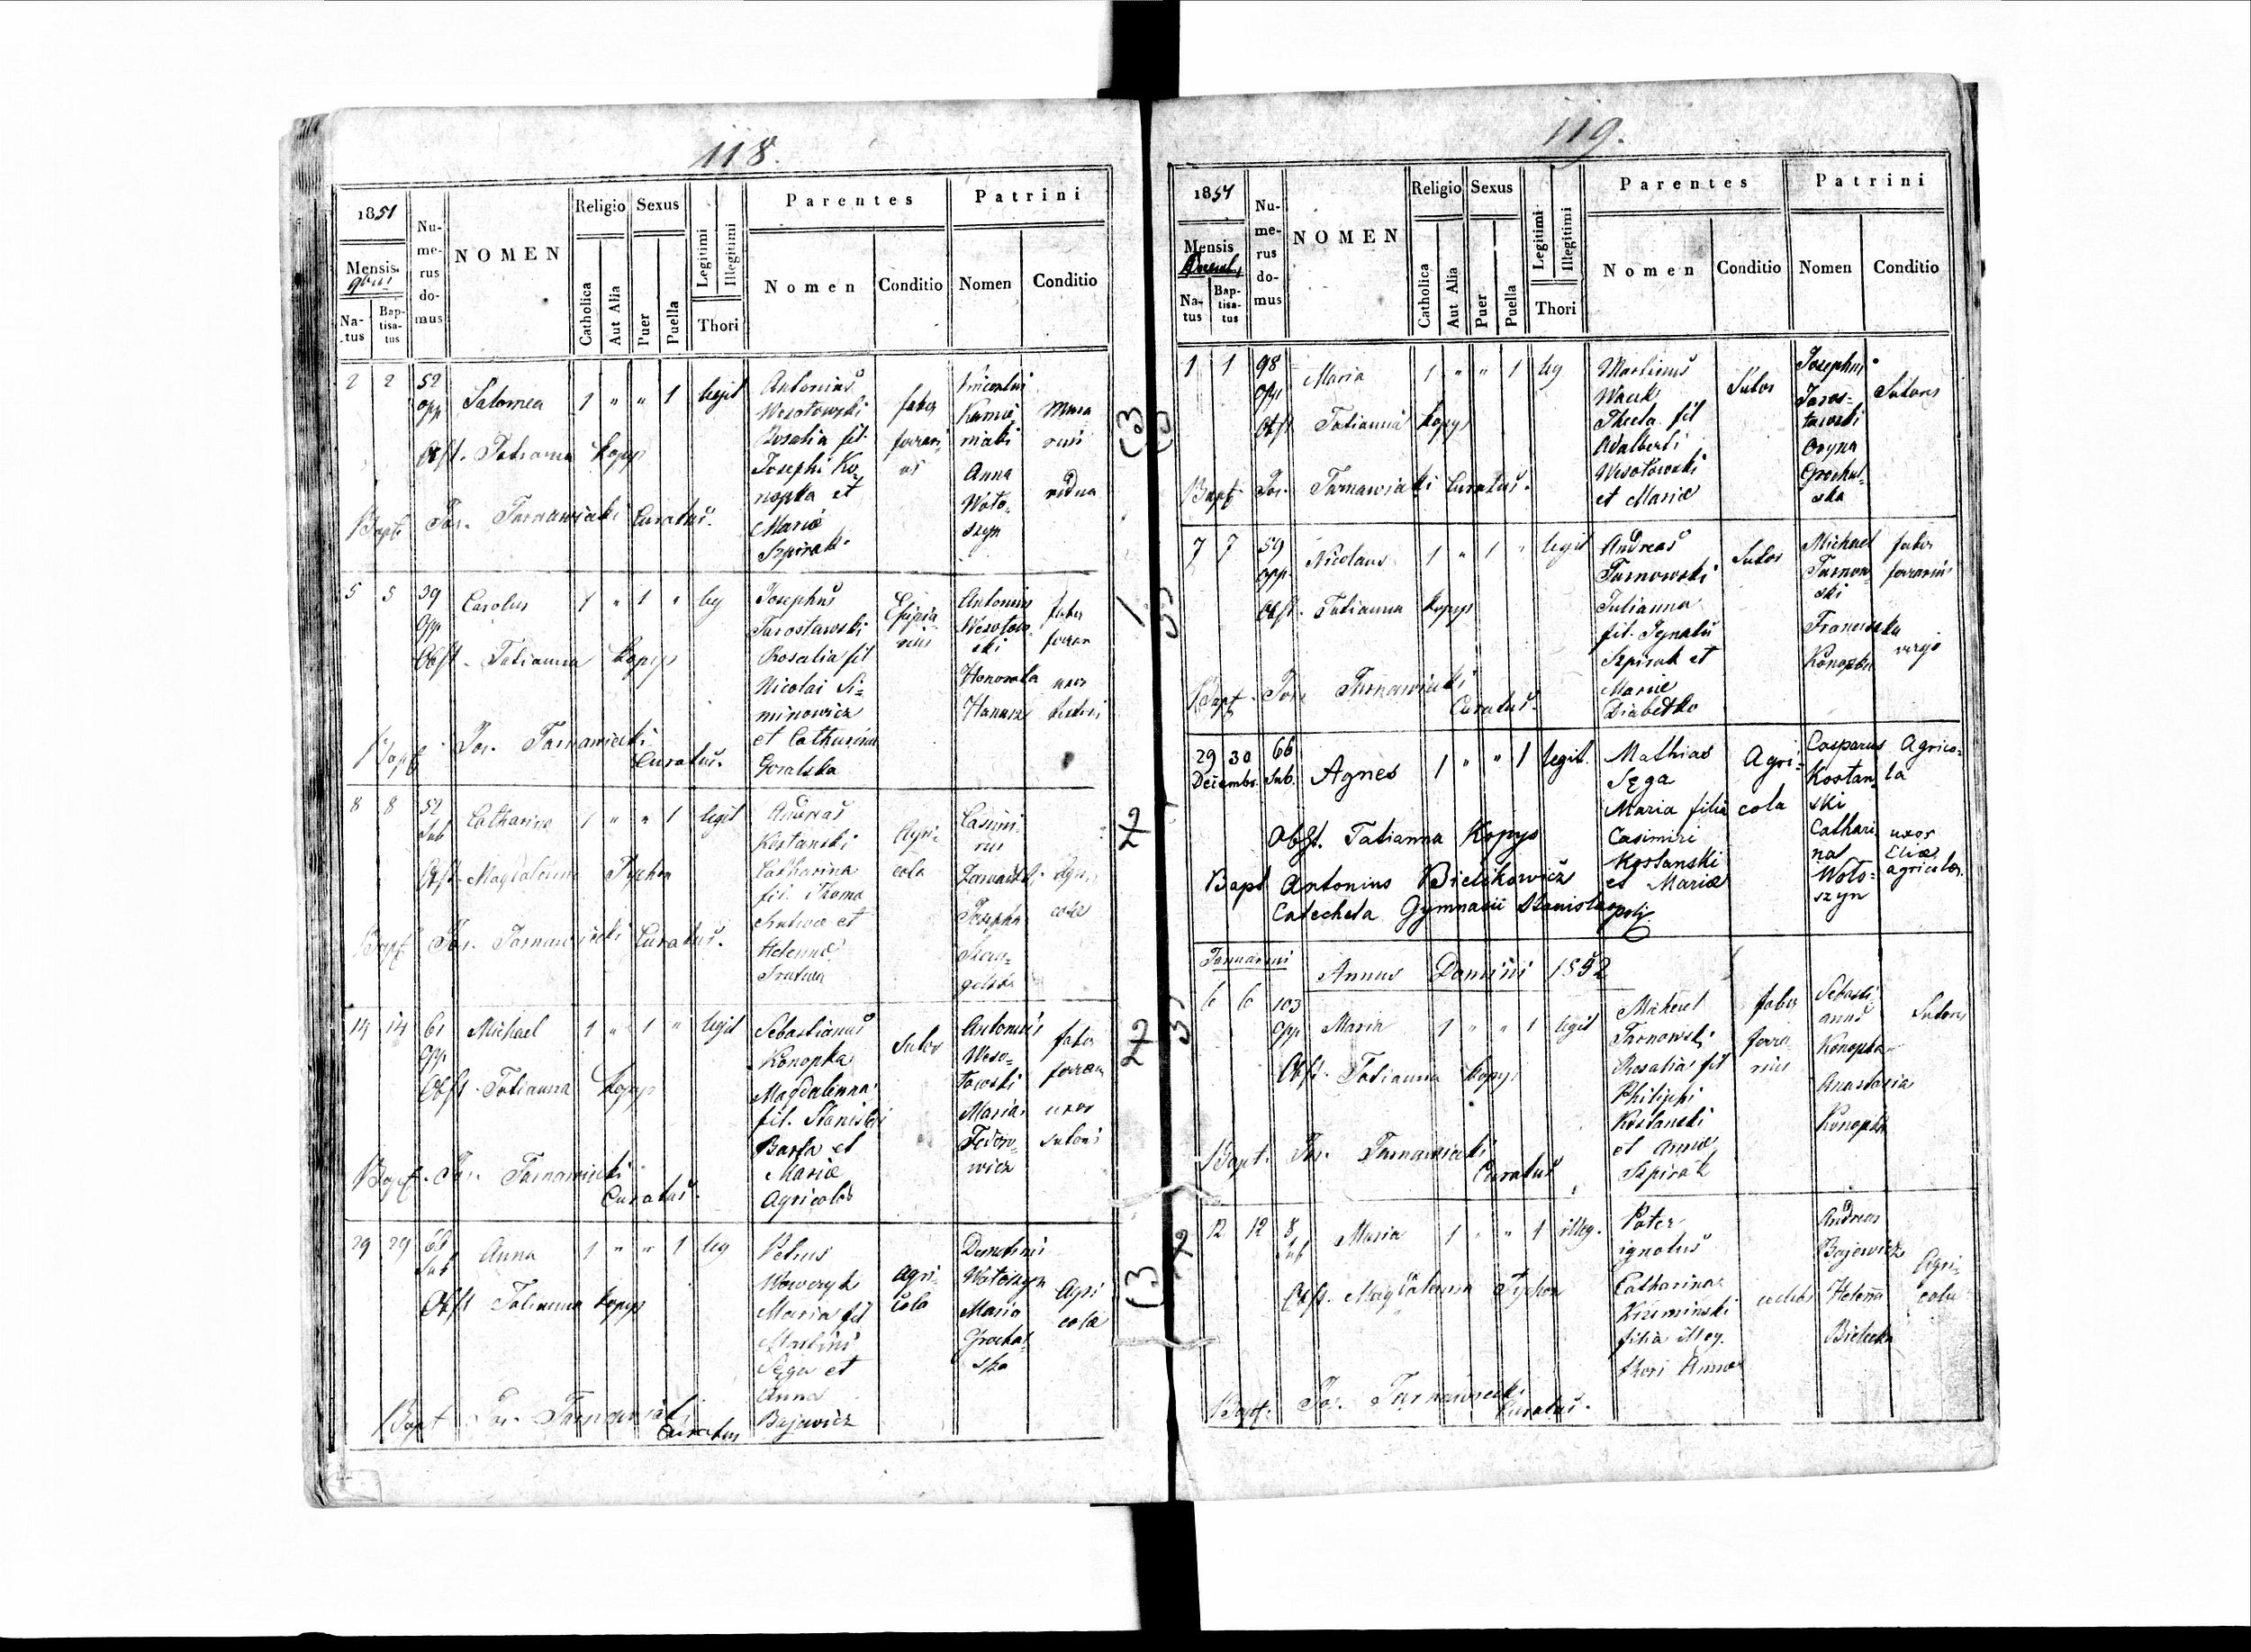 118.
1851
Mensis
Na-
tus
Bap-
tisa-
tus
Nu-
me-
rus
do-
mus
NOMEN
Religio
Catholica
Aut Alia
Sexus
Puer
Puella
Legitimi
Illegitimi
Thori
Parentes
Nomen
Conditio
Patrini
Nomen
Conditio
2 2 52 opp Salomea 1 " " 1 legit
Obst. Tatianna Kopys
Bapt. Jos. Tarnawiecki Curatus.
Antonius
Wesołowski
Rosalia fil.
Josephi Ko-
nopka et
Mariæ
Szpirak
faber
ferrari-
us
Anna
Woło-
szyn
5 5 39 opp Carolus 1 " 1 " leg
Obst. Tatianna Kopys
Bapt. Jos. Tarnawiecki
Curatus.
Josephus
Jarosławski
Rosalia fil
Nicolai Si-
minowicz
et Catharinæ
Goralska
Antonius
Wesołow-
ski
Honorata
Hanusz
faber
ferrar
uxor
sutoris
8 8 52 Sub Catharina 1 " " 1 legit
Obst. Magdalenna Tychon
Bapt. Jos. Tarnawiecki Curatus.
Andreas
Kostanski
Catharina
fil. Thoma
et
Helennæ
Agri-
cola
Casimi-
rus
Josepha
14 14 61 opp Michael 1 " 1 " legit
Obst. Tatianna Kopys
Bapt. Jos. Tarnawiecki
Curatus.
Sebastianus
Konopka
Magdalenna
fil. Stanislai
Barta et
Mariæ
Agricolæ
Sutor
Antonius
Weso-
łowski
Maria
Fedoro-
wicz
faber
ferrar
uxor
sutoris
29 29 66 Sub Anna 1 " " 1 leg
Obst Tatianna Kopys
Bapt Jos. Tarnawiecki
Curatus
Petrus
Wowczyk
Maria fil
Martini
Sęga et
Anna
Bajewicz
Agri-
cola
Demetrius
Wołoszyn
Maria
Grochal-
ska
Agri
colæ
119.
1851
Mensis
Decemb,
Na-
tus
Bap-
tisa-
tus
Nu-
me-
rus
do-
mus
NOMEN
Religio
Catholica
Aut Alia
Sexus
Puer
Puella
Legitimi
Illegitimi
Thori
Parentes
Nomen
Conditio
Patrini
Nomen
Conditio
1 1 98 opp Maria 1 " " 1 leg
Obst Tatianna Kopys
Bapt. Jos. Tarnawiecki Curatus.
Martinus
Thecla fil
Adalberti
Wesołowski
et Mariæ
Sutor
Josephus
Jaros-
ławski
Grochal-
ska
Sutores
7 7 59 opp. Nicolaus 1 " 1 " legit
Obst. Tatianna Kopys
Bapt. Jos. Tarnawiecki
Curatus.
Andreas
Tarnowski
Julianna
fil. Ignatii
Szpirak et
Mariæ
Diabełko
Sutor
Michael
Tarnow-
ski
Franciszka
Konopka
faber
ferrarius
virgo
29 30 Decembr. 66 Sub. Agnes 1 " " 1 legit.
Obst. Tatianna Kopys
Bapt Antonius Bielikowicz
Catecheta Gymnasii Stanislaopoli
Mathias
Sęga
Maria filia
Casimiri
Kostanski
et Mariæ
Agri-
cola
Casparus
Kostan-
ski
Cathari-
na
Woło-
szyn
Agrico-
la
uxor
Eliæ
agricolæ.
Januarius
Annus Domini 1852
6 6 103 opp Maria 1 " " 1 legit
Obst. Tatianna Kopys
Bapt. Jos. Tarnawiecki
Curatus
Michael
Tarnowski
Rosalia fil
Philippi
Kostanski
et Annæ
Szpirak
faber
ferra
rius
Sebasti-
anus
Konopka
Anastasia
Konopka
Sutores
12 12 8 Sub Maria 1 " " 1 illeg.
Obst. Magdalenna Tychon
Bapt. Jos. Tarnawiecki
Curatus.
Pater
ignotus
Catharina
Krzeminski
filia illeg.
thori Annæ
Andreas
Bajewicz
Helena
Bielecka
Agri-
colæ